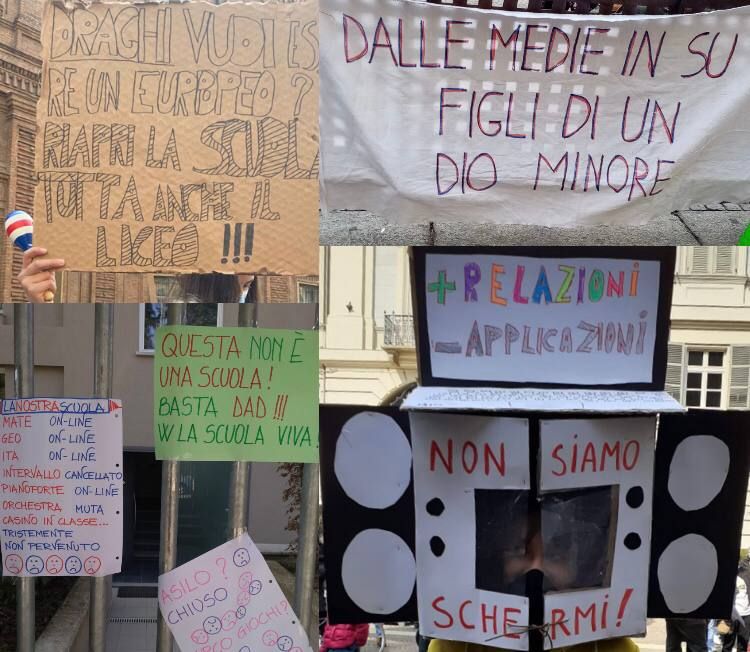 DRAGHI VUOI ES
RE UN EUROPEO ?
RIAPRI LA SCUOLA
TUTTA ANCHE IL
LICEO !!!
DALLE MEDIE IN SU
FIGLI DI UN
DIO MINORE
LA NOSTRA SCUOLA
MATE ON-LINE
GEO ON-LINE
ITA ON-LINE
INTERVALLO CANCELLATO
PIANOFORTE ON-LINE
ORCHESTRA MUTA
CASINO IN CLASSE...
TRISTEMENTE
NON PERVENUTO
QUESTA NON È
UNA SCUOLA!
BASTA DAD!!!
W LA SCUOLA VIVA!
ASILO?
CHIUSO
GIOCHI?
+ RELAZIONI
- APPLICAZIONI
NON SIAMO
SCHERMI!